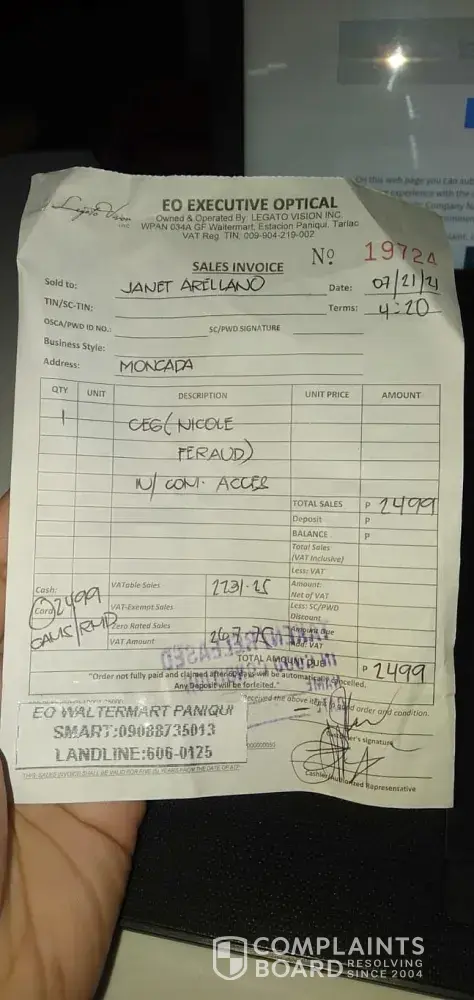 Legato Vision INC.
EO EXECUTIVE OPTICAL
Owned & Operated By: LEGATO VISION INC.
WPAN 034A GF Waltermart, Estacion Paniqui, Tarlac
VAT Reg. TIN: 009-904-219-002
SALES INVOICE
No 19724
Sold to: JANET ARELLANO Date: 07/21/21
TIN/SC-TIN: Terms: 4:20
OSCA/PWD ID NO.: SC/PWD SIGNATURE
Business Style:
Address: MONCADA
QTY UNIT DESCRIPTION UNIT PRICE AMOUNT
1 CEG (NICOLE
FERAUD)
W/ COM. ACCES
TOTAL SALES P 2499
Deposit P
BALANCE P
Total Sales
(VAT Inclusive)
Less: VAT
Cash: VATable Sales 2231.25 Amount:
Net of VAT
Card 2499 VAT-Exempt Sales Less: SC/PWD
Discount
Zero Rated Sales Amount Due
VAT Amount 267.75 Add: VAT
TAKEN/RELEASED
TOTAL AMOUNT DUE P 2499
"Order not fully paid and claimed after days will be automatically cancelled.
Any Deposit will be forfeited."
Received the above items in good order and condition.
EO WALTERMART PANIQUI
SMART:09088735013
LANDLINE:606-0125
Customer's signature
Cashier/Authorized Representative
THIS SALES INVOICE SHALL BE VALID FOR FIVE (5) YEARS FROM THE DATE OF ATP
On this web page you can
experience with the
Company
COMPLAINTS
BOARD RESOLVING
SINCE 2004